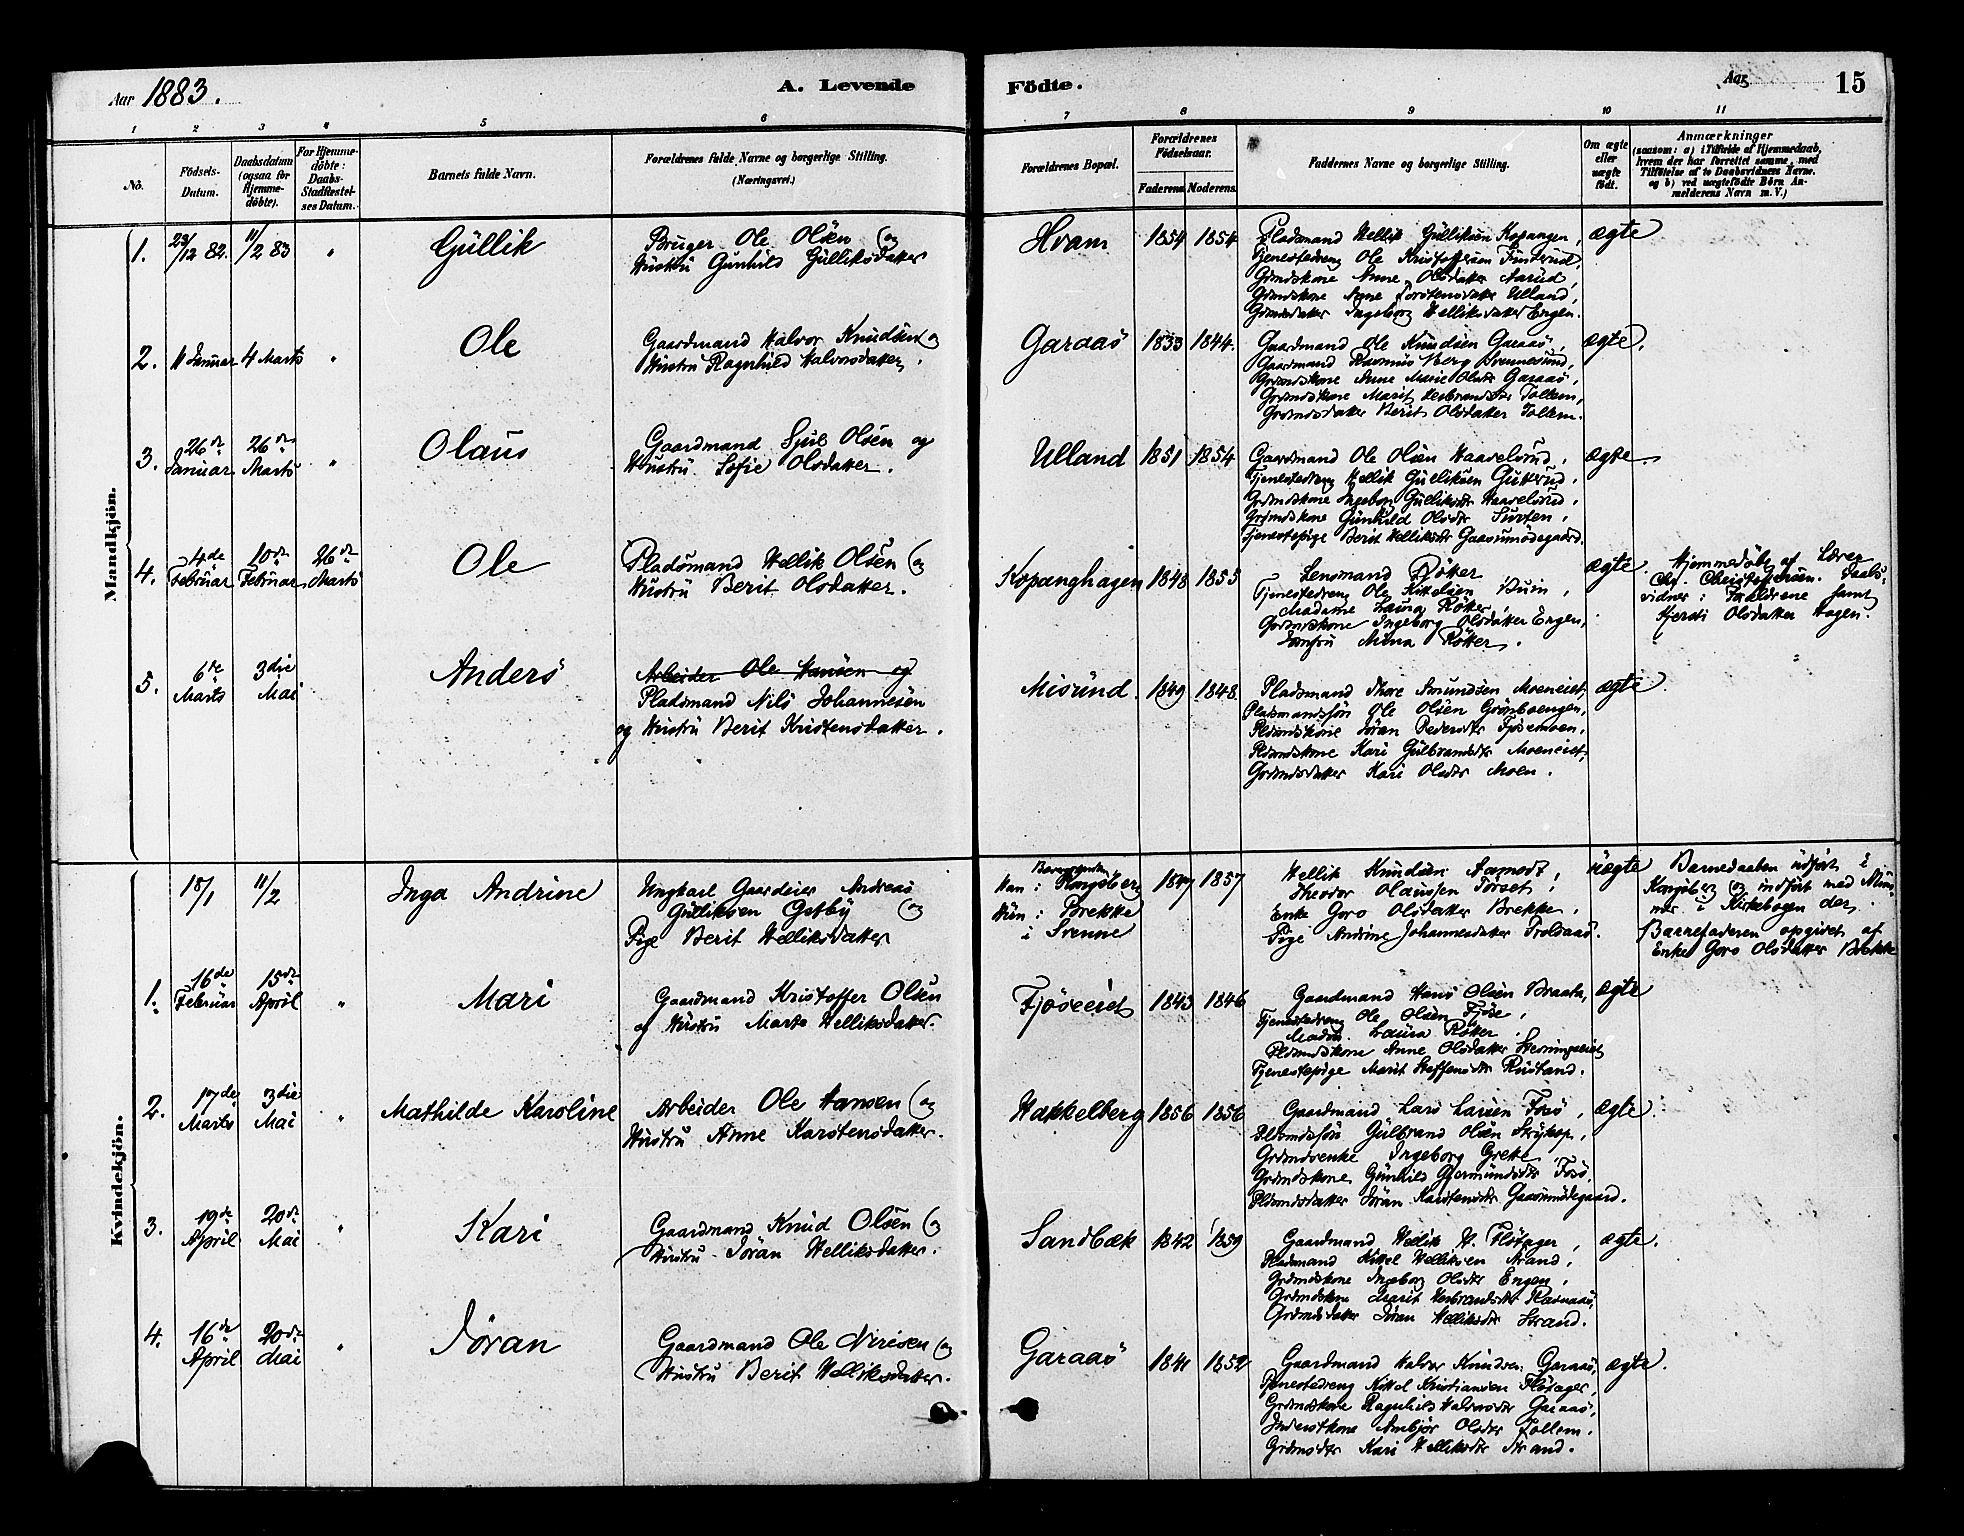 Aar 1883.
A. Levende
Födte.
Aar
15
1 2 3 4 5 6 7 8 9 10 11
No.
Födsels-
Datum.
Daabsdatum
(ogsaa for
Hjemme-
döbte).
For Hjemme-
döbte:
Daabs-
Stadfæstel-
ses Datum.
Barnets fulde Navn.
Forældrenes fulde Navne og borgerlige Stilling.
(Næringsvei.)
Forældrenes Bopæl.
Forældrenes
Födselsaar.
Faderens. Moderens.
Faddernes Navne og borgerlige Stilling.
Om ægte
eller
uægte
födt.
Anmærkninger
(saasom: a) i Tilfælde af Hjemmedaab,
hvem der har forrettet samme, med
Tilföielse af to Daabsvidners Navne.
og b) ved uægtefödte Börn An-
melderens Navn m. V.)
Mandkjön.
1.
23/12 82.
11/2 83
"
Gullik
Bruger Ole Olsen og
Hustru Gunhild Gulliksdatter
Hvam
1854
1854
Pladsmand Hellik Gulliksen Kopangen,
Tjenestedreng Ole Kristoffersen
Grdmdskone Anne Olsdatter Aarud,
Grdmdskone Anne Torstensdatter Ulland,
Grdmdsdatter Ingeborg Helliksdatter Engen.
ægte
2.
11 Januar
4 Marts
"
Ole
Gaardmand Halvor Knudsen og
Hustru Ragnhild Halvorsdatter.
Garaas
1833
1844.
Gaardmand Ole Knudsen Garaas,
Gaardmand Rasmus Berg Svennesund,
Grdmdskone Anne Marie Olsdtr Garaas,
Grdmdskone Marit Herbrandsdtr Tollem,
Grdmdsdatter Berit Olsdatter Tollem.
ægte.
3.
26de
Januar
26de
Marts
"
Olaus
Gaardmand Sjul Olsen og
Hustru Sofie Olsdatter.
Ulland
1851
1854
Gaardmand Ole Olsen Haavelsrud,
Tjenestedreng Hellik Gulliksen Gutterud,
Grdmdskone Ingeborg Gulliksdtr Haavelsrud,
Grdmdskone Gunhild Olsdtr
Tjenestepige Berit Helliksdtr Gaasmundsgaard.
ægte.
4.
4de
Februar
10de
Februar
26de
Marts
Ole
Pladsmand Hellik Olsen og
Hustru Berit Olsdatter.
Kopanghagen
1848
1855
Lensmand Røtter
Tjenestedreng Ole Kittelsen Buin,
Madame Laura Røtter,
Grdmdskone Ingeborg Olsdatter Engen,
Jomfru Minna Røtter.
ægte.
Hjemmedöbt af Lærer
Chr. Christophersen. Daabs-
vidner: Forældrene samt
Olsdatter Hagen.
5.
6te
Marts
3die
Mai
Anders
Arbeider Ole Hansen og
Pladsmand Nils Johannesen
og Hustru Berit Kristensdatter.
Misund.
1849
1848.
Pladsmand Thore Amundsen Moeneiet,
Pladsmandssön Ole Olsen Grönboengen,
Pldsmdskone Jöran Pedersdtr Fjösemoen,
Pldsmdskone Kari Gulbrandsdtr Moeneiet,
Grdmdsdatter Kari Olsdtr Moen.
ægte.
Kvindekjön.
18/1
11/2
Inga Andrine
Ungkarl Gaardeier Andreas
Gulliksen Østby og
Pige Berit Helliksdatter
Han: Kongsberg
Hun: Brekke
i Svenne
1857
Hellik Knudsen Aamodt,
Theodor Olaussen Torset,
Enke Goro Olsdatter Brekke,
Pige Andrine Johannesdatter
uægte
Barnedaaben udfört i
Kongsberg og indfört med Num-
mer i Kirkebogen der.
Barnefaderen opgivet af
Enke Goro Olsdatter Brekke
1.
16de
Februar
15de
April
"
Mari
Gaardmand Kristoffer Olsen
og Hustru Marte Helliksdatter.
Fjöseeiet
1843
1846
Gaardmand Hans Olsen Braata,
Tjenestedreng Ole Olsen Fjöse,
Madm. Laura Røtter.
Pldsmdskone Anne Olsdatter
Tjenestepige Marit Steffensdtr Rustand.
ægte
2.
17de
Marts
3die
Mai
"
Mathilde Karoline
Arbeider Ole Hansen og
Hustru Anne Karstensdatter.
Hakkelberg
1856
1856
Gaardmand Lars Larsen Foss,
Pldsmdssön Gulbrand Olsen
Grdmdsenke Ingeborg Grette,
Grdmdskone Gunhild Gjermundsdtr Foss,
Pldsmdsdatter Jöran Karstensdtr Gaasmundsgaard.
ægte.
3.
19de
April
20de
Mai
"
Kari
Gaardmand Knud Olsen og
Hustru Jöran Helliksdatter.
Sandbæk
1842
1859
Gaardmand Hellik H. Fløtager,
Pladsmand Kittel Helliksen Strand,
Grdmdskone Ingeborg Olsdtr Engen,
Grdmdskone Marit Herbrandsdtr
Grdmdsdatter Jöran Helliksdtr Strand.
ægte.
4.
16de
April
20de
Mai
"
Jöran
Gaardmand Ole Nirisen og
Hustru Berit Helliksdatter.
Garaas
1841
1852
Gaardmand Halvor Knudsen Garaas,
Tjenestedreng Kittel Kristiansen Fløtager,
Grdmdskone Ragnhild Halvorsdtr Garaas,
Inderstkone Ambjør Olsdtr Tollem.
Grdmdsdtr Kari Helliksdtr Strand.
ægte.